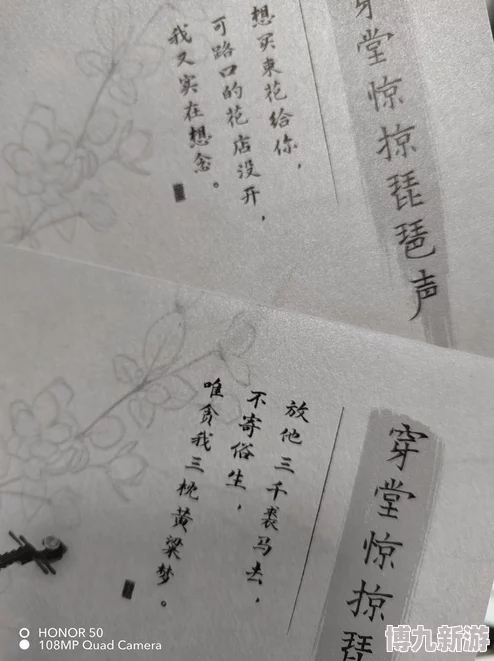 穿堂惊掠琵琶声
想买束花给你，
可路口的花店没开，
我又实在想念。
穿堂惊掠琵
放他三千裘马去，
不寄俗生，
唯贪我三枕黄粱梦。
HONOR 50
108MP Quad Camera
博九新游